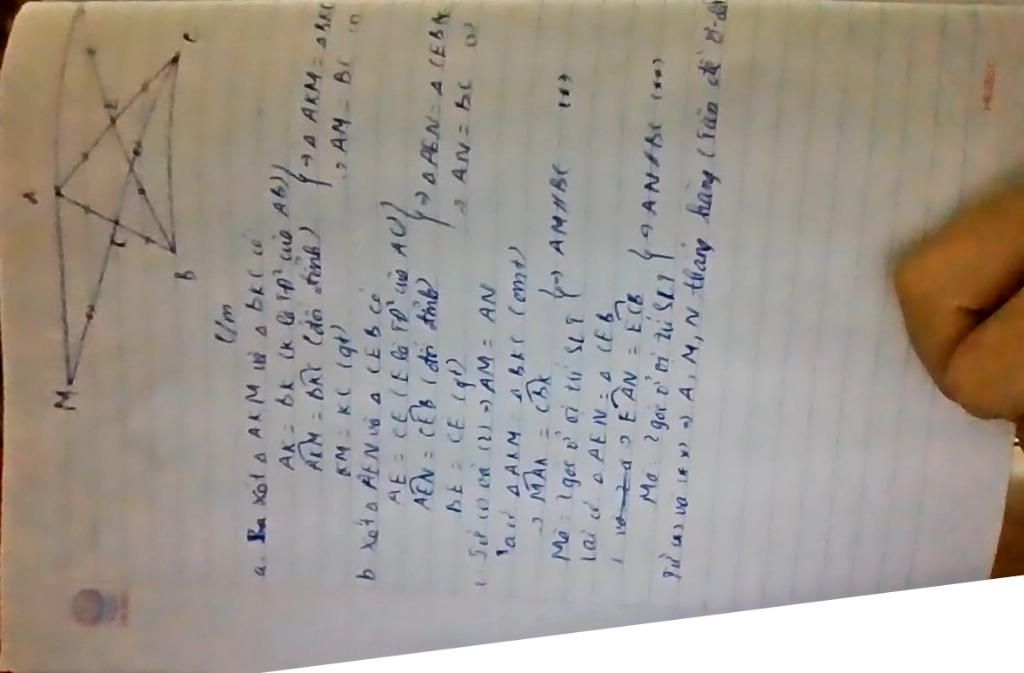 A
M
E
K
B
C
Cm
a. Xét Δ AKM và Δ BKC có
AK = BK (K là TĐ của AB)
AKM = BKC (đối đỉnh)
KM = KC (gt)
} => Δ AKM = Δ BKC
=> AM = BC
b Xét Δ AEN và Δ CEB có
AE = CE (E là TĐ của AC)
AEN = CEB (đối đỉnh)
BE = CE (gt)
} => Δ AEN = Δ CEB
=> AN = BC
c. Từ (1) và (2) => AM = AN
Ta có Δ AKM = Δ BKC (cmt)
=> MAK = CBK
Mà 2 góc ở vị trí SLT } => AM // BC (*)
Lại có Δ AEN = Δ CEB
=> EAN = ECB
Mà 2 góc ở vị trí SLT } => AN // BC (**)
Từ (*) và (**) => A, M, N thẳng hàng (Tiên đề Ơ-